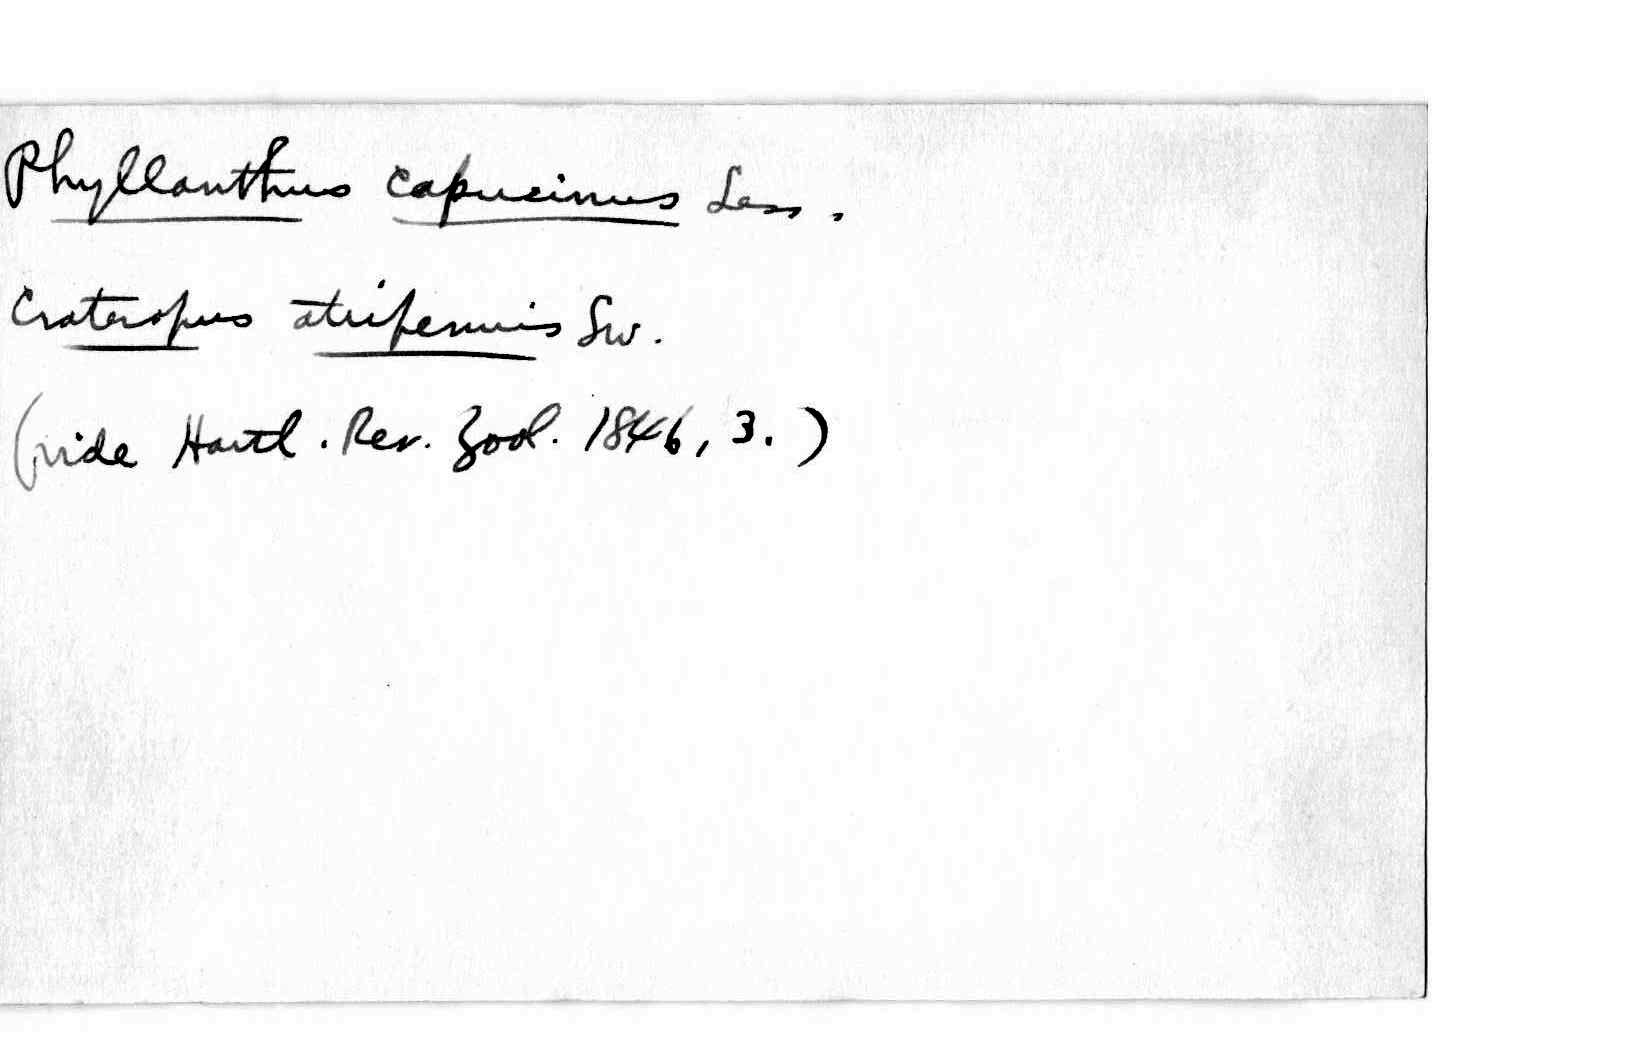 Phyllanthus capucinus Less.
Crateropus atripennis Sw.
(vide Hartl. Rev. Zool. 1846, 3.)